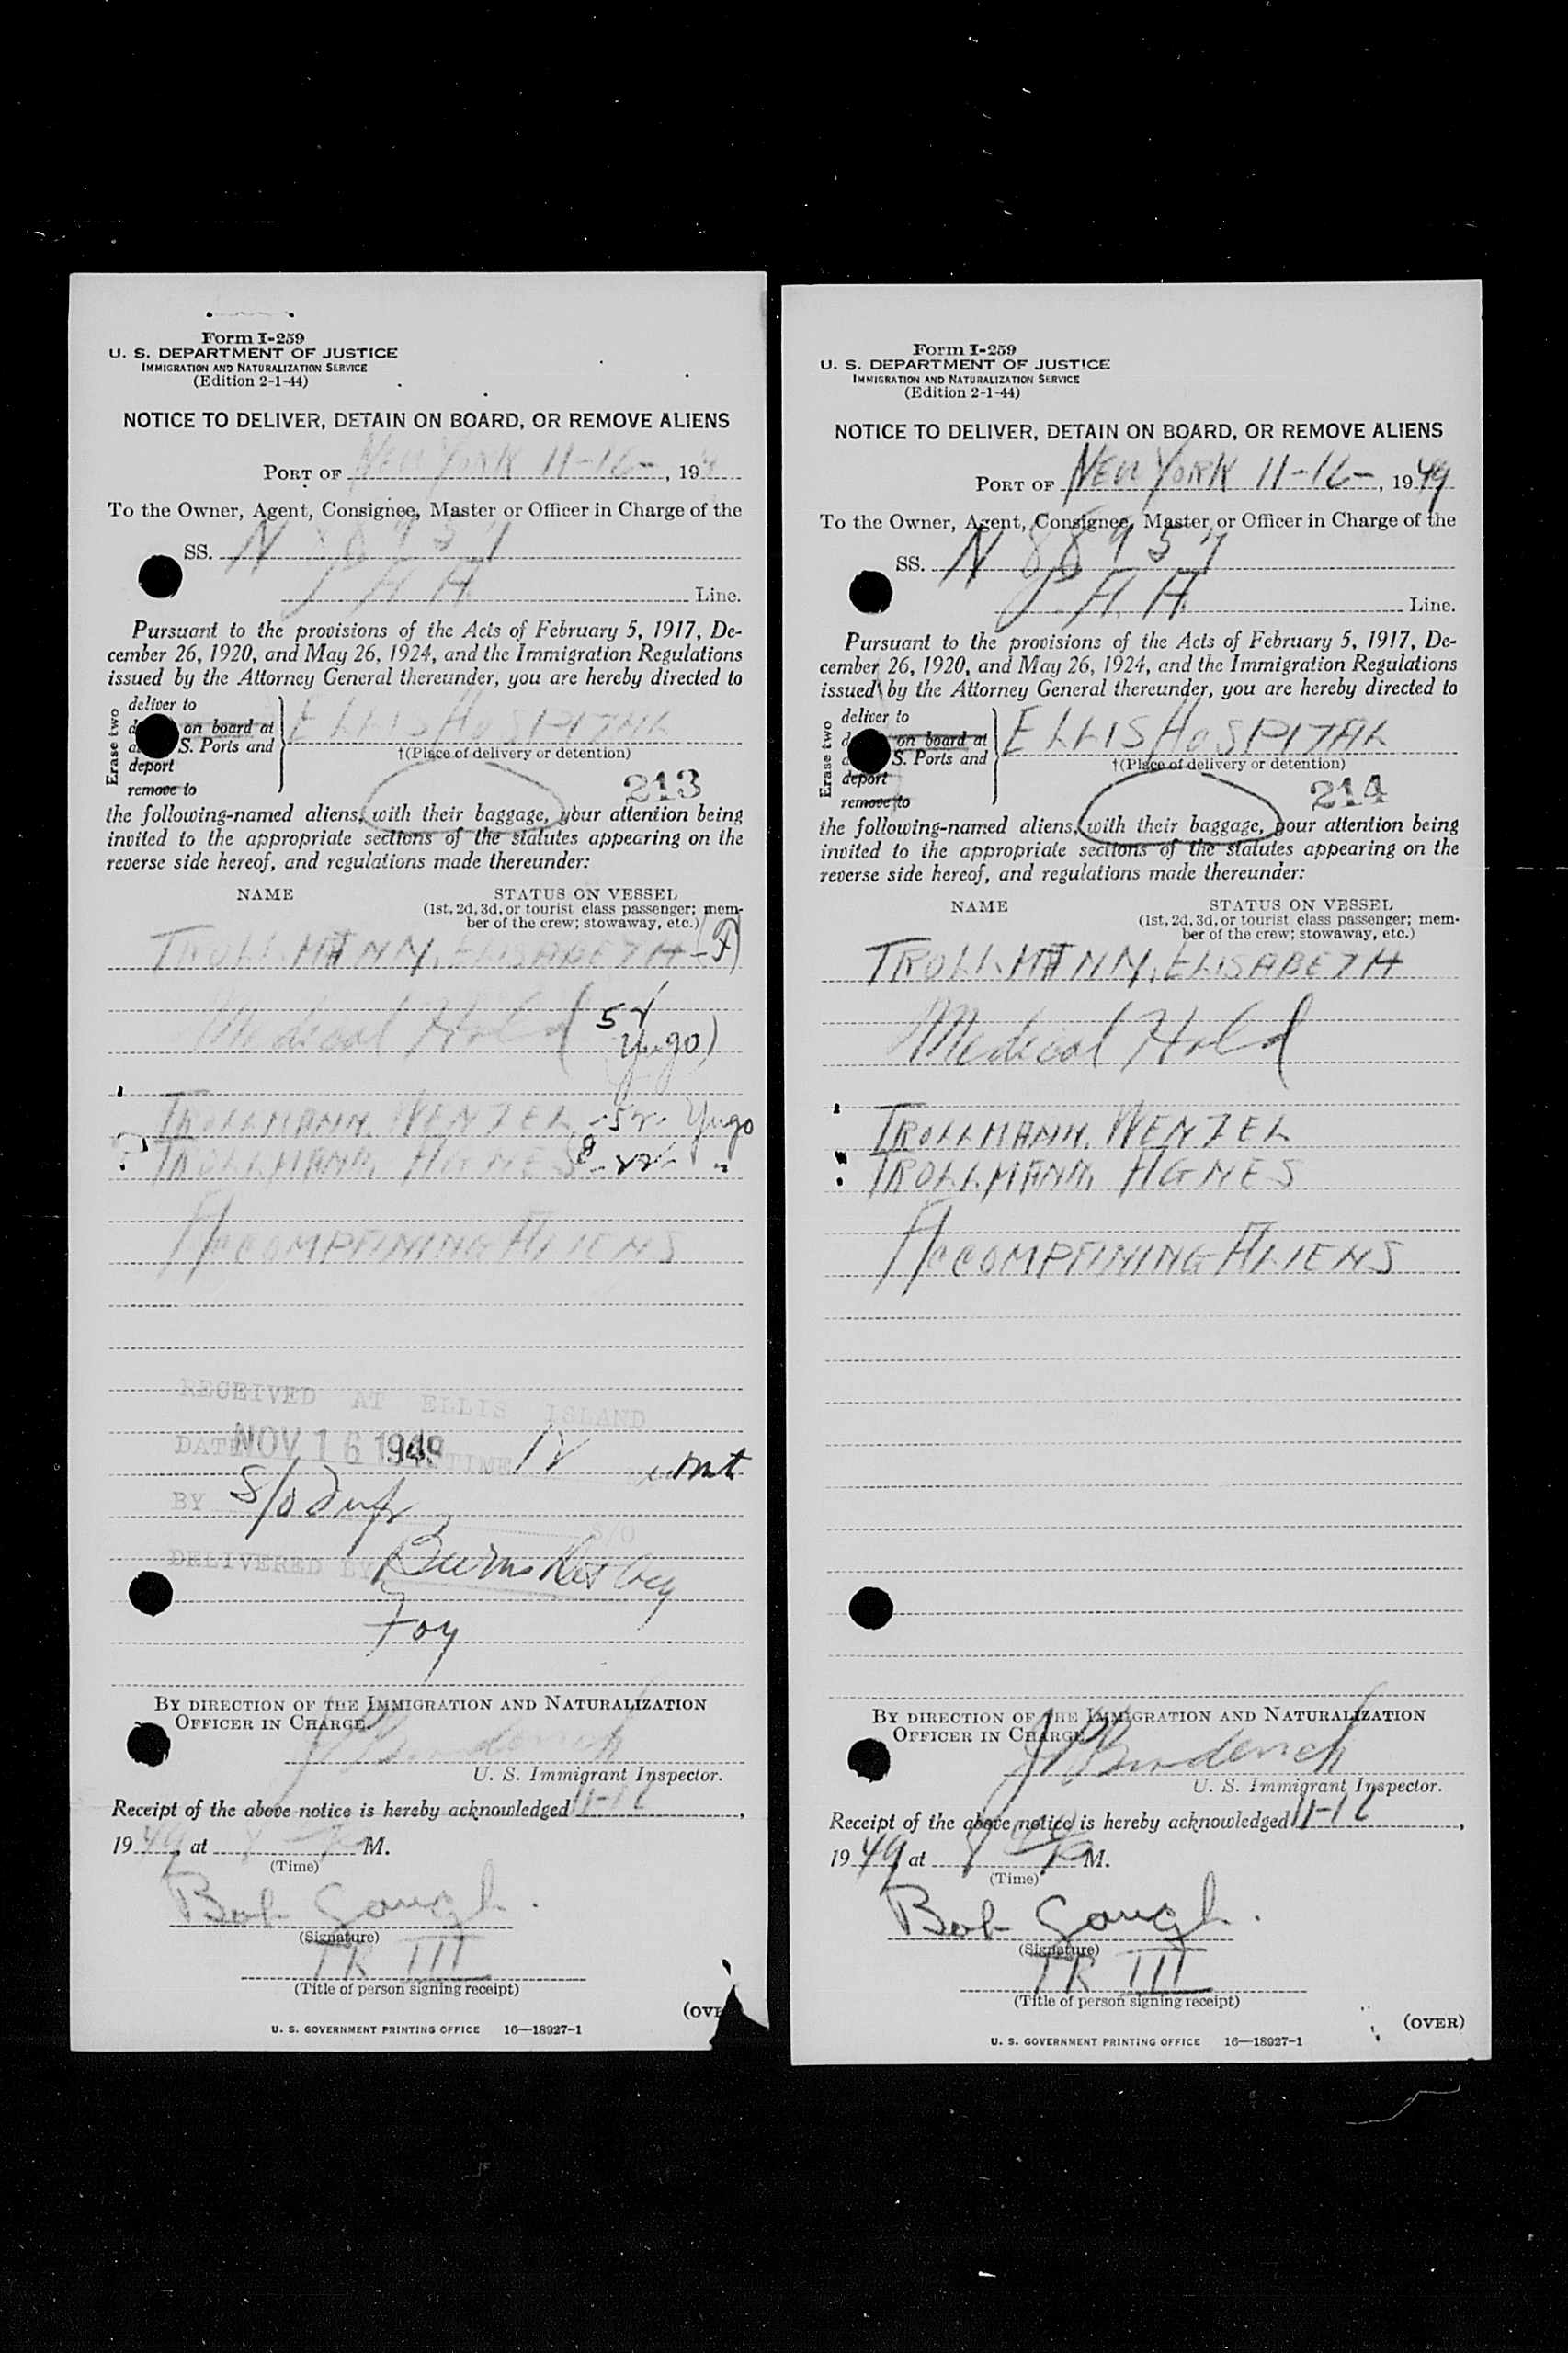 Form I-259
U. S. DEPARTMENT OF JUSTICE
IMMIGRATION AND NATURALIZATION SERVICE
(Edition 2-1-44)
NOTICE TO DELIVER, DETAIN ON BOARD, OR REMOVE ALIENS
PORT OF NEW YORK 11-16-, 194
To the Owner, Agent, Consignee, Master or Officer in Charge of the
SS. N 88957
PAA Line.
Pursuant to the provisions of the Acts of February 5, 1917, De-
cember 26, 1920, and May 26, 1924, and the Immigration Regulations
issued by the Attorney General thereunder, you are hereby directed to
Erase two
deliver to
on board at
S. Ports and
deport
remove to
ELLIS HOSPITAL
†(Place of delivery or detention)
213
the following-named aliens, with their baggage, your attention being
invited to the appropriate sections of the statutes appearing on the
reverse side hereof, and regulations made thereunder:
NAME STATUS ON VESSEL
(1st, 2d, 3d, or tourist class passenger; mem-
ber of the crew; stowaway, etc.)
TROLLMANN, ELISABETH - (F)
Medical Hold (5y
Yugo)
TROLLMANN, WENZEL Yugo
TROLLMANN, AGNES "
ACCOMPAINING ALIENS
RECEIVED AT ELLIS ISLAND
DATE NOV 16 1949 TIME 12 mt
BY S/O
S/O
DELIVERED BY Burns Det Acy
Foy
BY DIRECTION OF THE IMMIGRATION AND NATURALIZATION
OFFICER IN CHARGE.
U. S. Immigrant Inspector.
Receipt of the above notice is hereby acknowledged 11-16,
1949, at 8 M.
(Time)
Bob Gough.
(Signature)
TR III
(Title of person signing receipt)
(OVE
U. S. GOVERNMENT PRINTING OFFICE 16—18927-1
Form I-259
U. S. DEPARTMENT OF JUSTICE
IMMIGRATION AND NATURALIZATION SERVICE
(Edition 2-1-44)
NOTICE TO DELIVER, DETAIN ON BOARD, OR REMOVE ALIENS
PORT OF NEW YORK 11-16-, 1949
To the Owner, Agent, Consignee, Master or Officer in Charge of the
SS. N 88957
PAA Line.
Pursuant to the provisions of the Acts of February 5, 1917, De-
cember 26, 1920, and May 26, 1924, and the Immigration Regulations
issued by the Attorney General thereunder, you are hereby directed to
Erase two
deliver to
on board at
S. Ports and
deport
remove to
ELLIS HOSPITAL
†(Place of delivery or detention)
214
the following-named aliens, with their baggage, your attention being
invited to the appropriate sections of the statutes appearing on the
reverse side hereof, and regulations made thereunder:
NAME STATUS ON VESSEL
(1st, 2d, 3d, or tourist class passenger; mem-
ber of the crew; stowaway, etc.)
TROLLMANN, ELISABETH
Medical Hold
TROLLMANN, WENZEL
TROLLMANN, AGNES
ACCOMPAINING ALIENS
BY DIRECTION OF THE IMMIGRATION AND NATURALIZATION
OFFICER IN CHARGE.
U. S. Immigrant Inspector.
Receipt of the above notice is hereby acknowledged 11-16,
1949 at 8 M.
(Time)
Bob Gough.
(Signature)
TR III
(Title of person signing receipt)
(OVER)
U. S. GOVERNMENT PRINTING OFFICE 16—18927-1